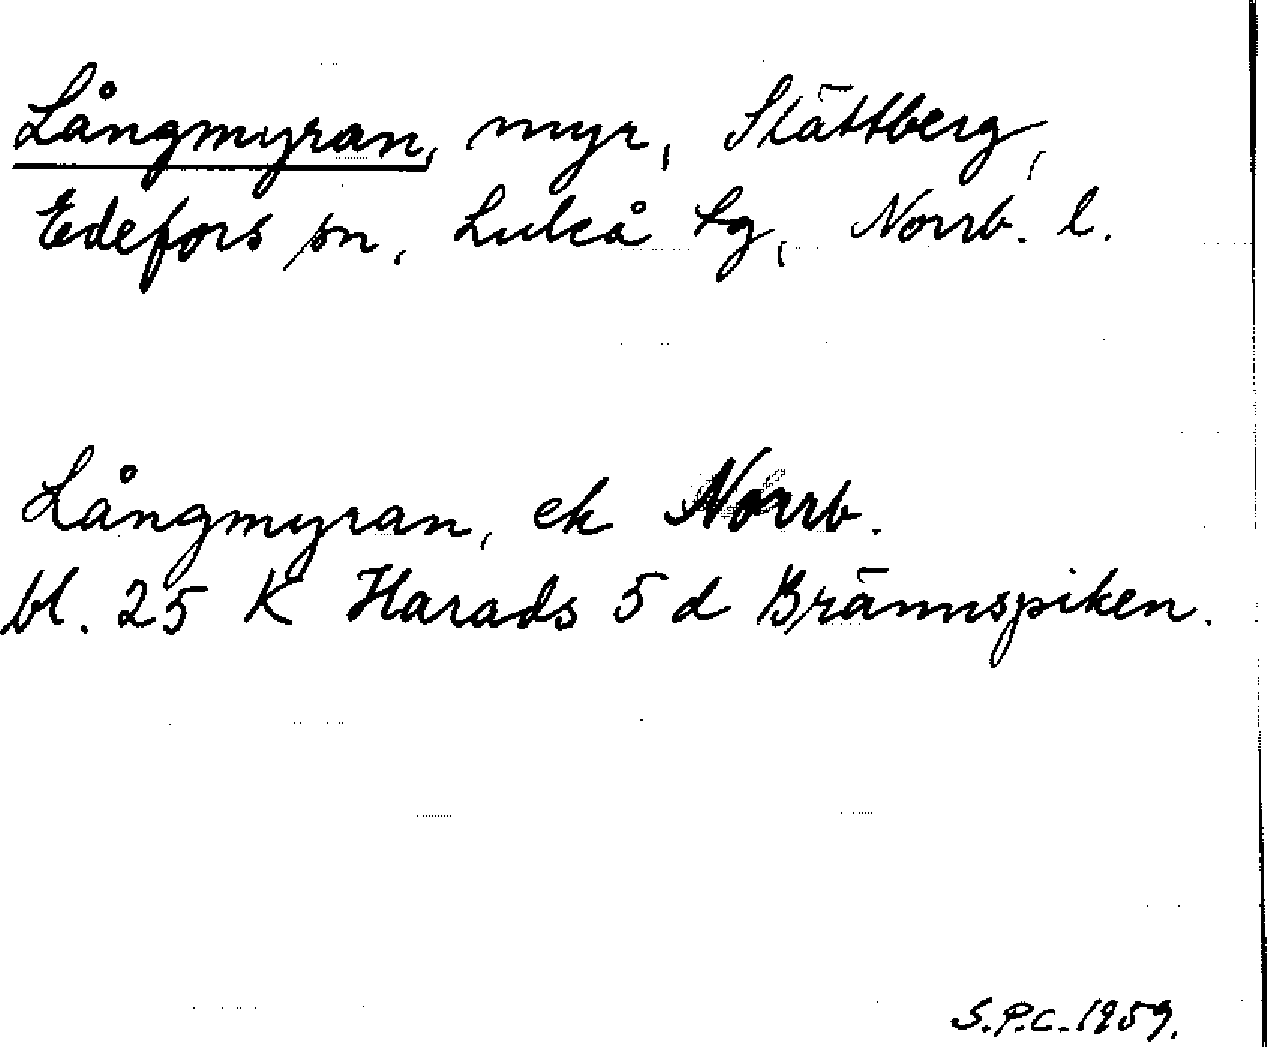 Långmyran, myr, Slättberg,
Edefors sn, Luleå tg, Norrb. l.
Långmyran, ek Norrb.
bl. 25 K Harads 5 d Brännspiken.
S.P.C. 1959.